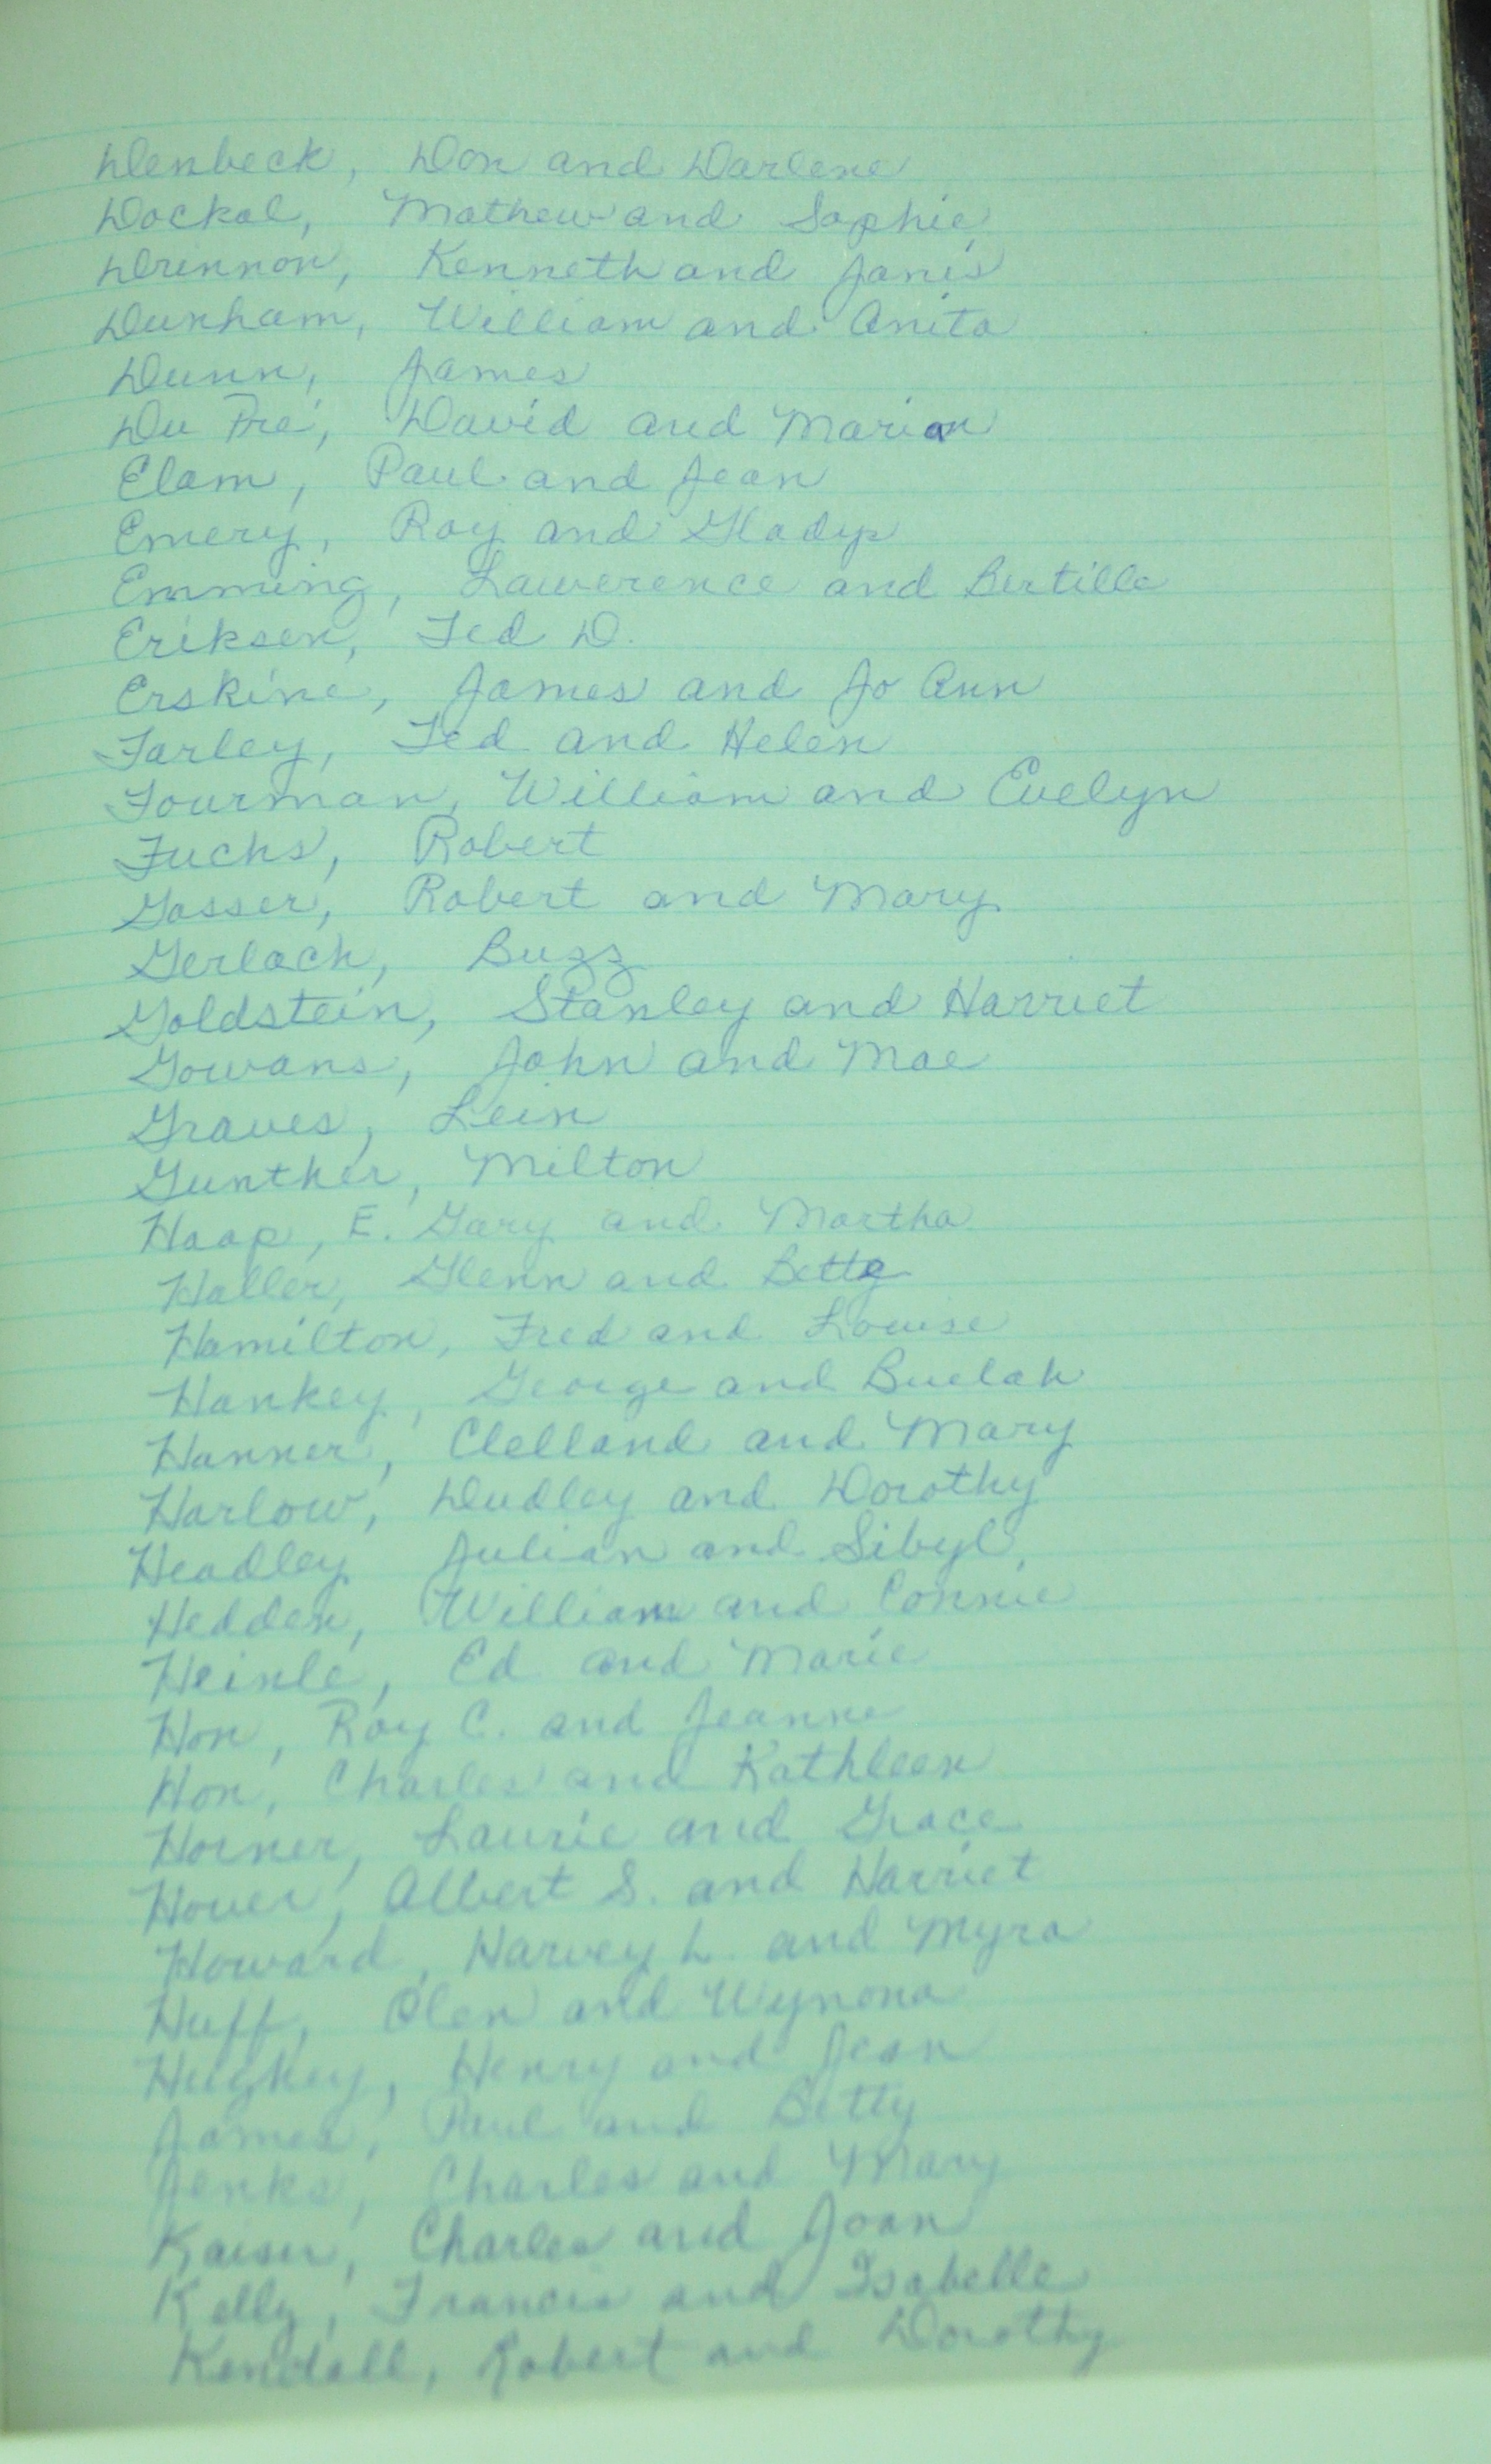 Denbeck, Don and Darlene
Dockal, Mathew and Sophie
Drennon, Kenneth and Janis
Dunham, William and Anita
Dunn, James
Du Pre', David and Marion
Elam, Paul and Jean
Emery, Roy and Gladys
Emming, Lawerence and Bertille
Eriksen, Ted D.
Erskine, James and Jo Ann
Farley, Ted and Helen
Fourman, William and Evelyn
Fuchs, Robert
Gasser, Robert and Mary
Gerlach, Buzz
Goldstein, Stanley and Harriet
Gowans, John and Mae
Graves, Lein
Gunther, Milton
Haap, E. Gary and Martha
Haller, Glenn and Bette
Hamilton, Fred and Louise
Hankey, George and Buelah
Hanner, Clelland and Mary
Harlow, Dudley and Dorothy
Headley Julian and Sibyl,
Hedden, William and Connie
Heinle, Ed and Marie
Hon, Roy C. and Jeanne
Hon, Charles and Kathleen
Horner, Laurie and Grace
Hover, Albert S. and Harriet
Howard, Harvey L. and Myra
Huff, Olen and Wynona
Hughey, Henry and Jean
James, Paul and Betty
Jenks, Charles and Mary
Kaiser, Charles and Joan
Kelly, Francis and Isabelle
Kendall, Robert and Dorothy